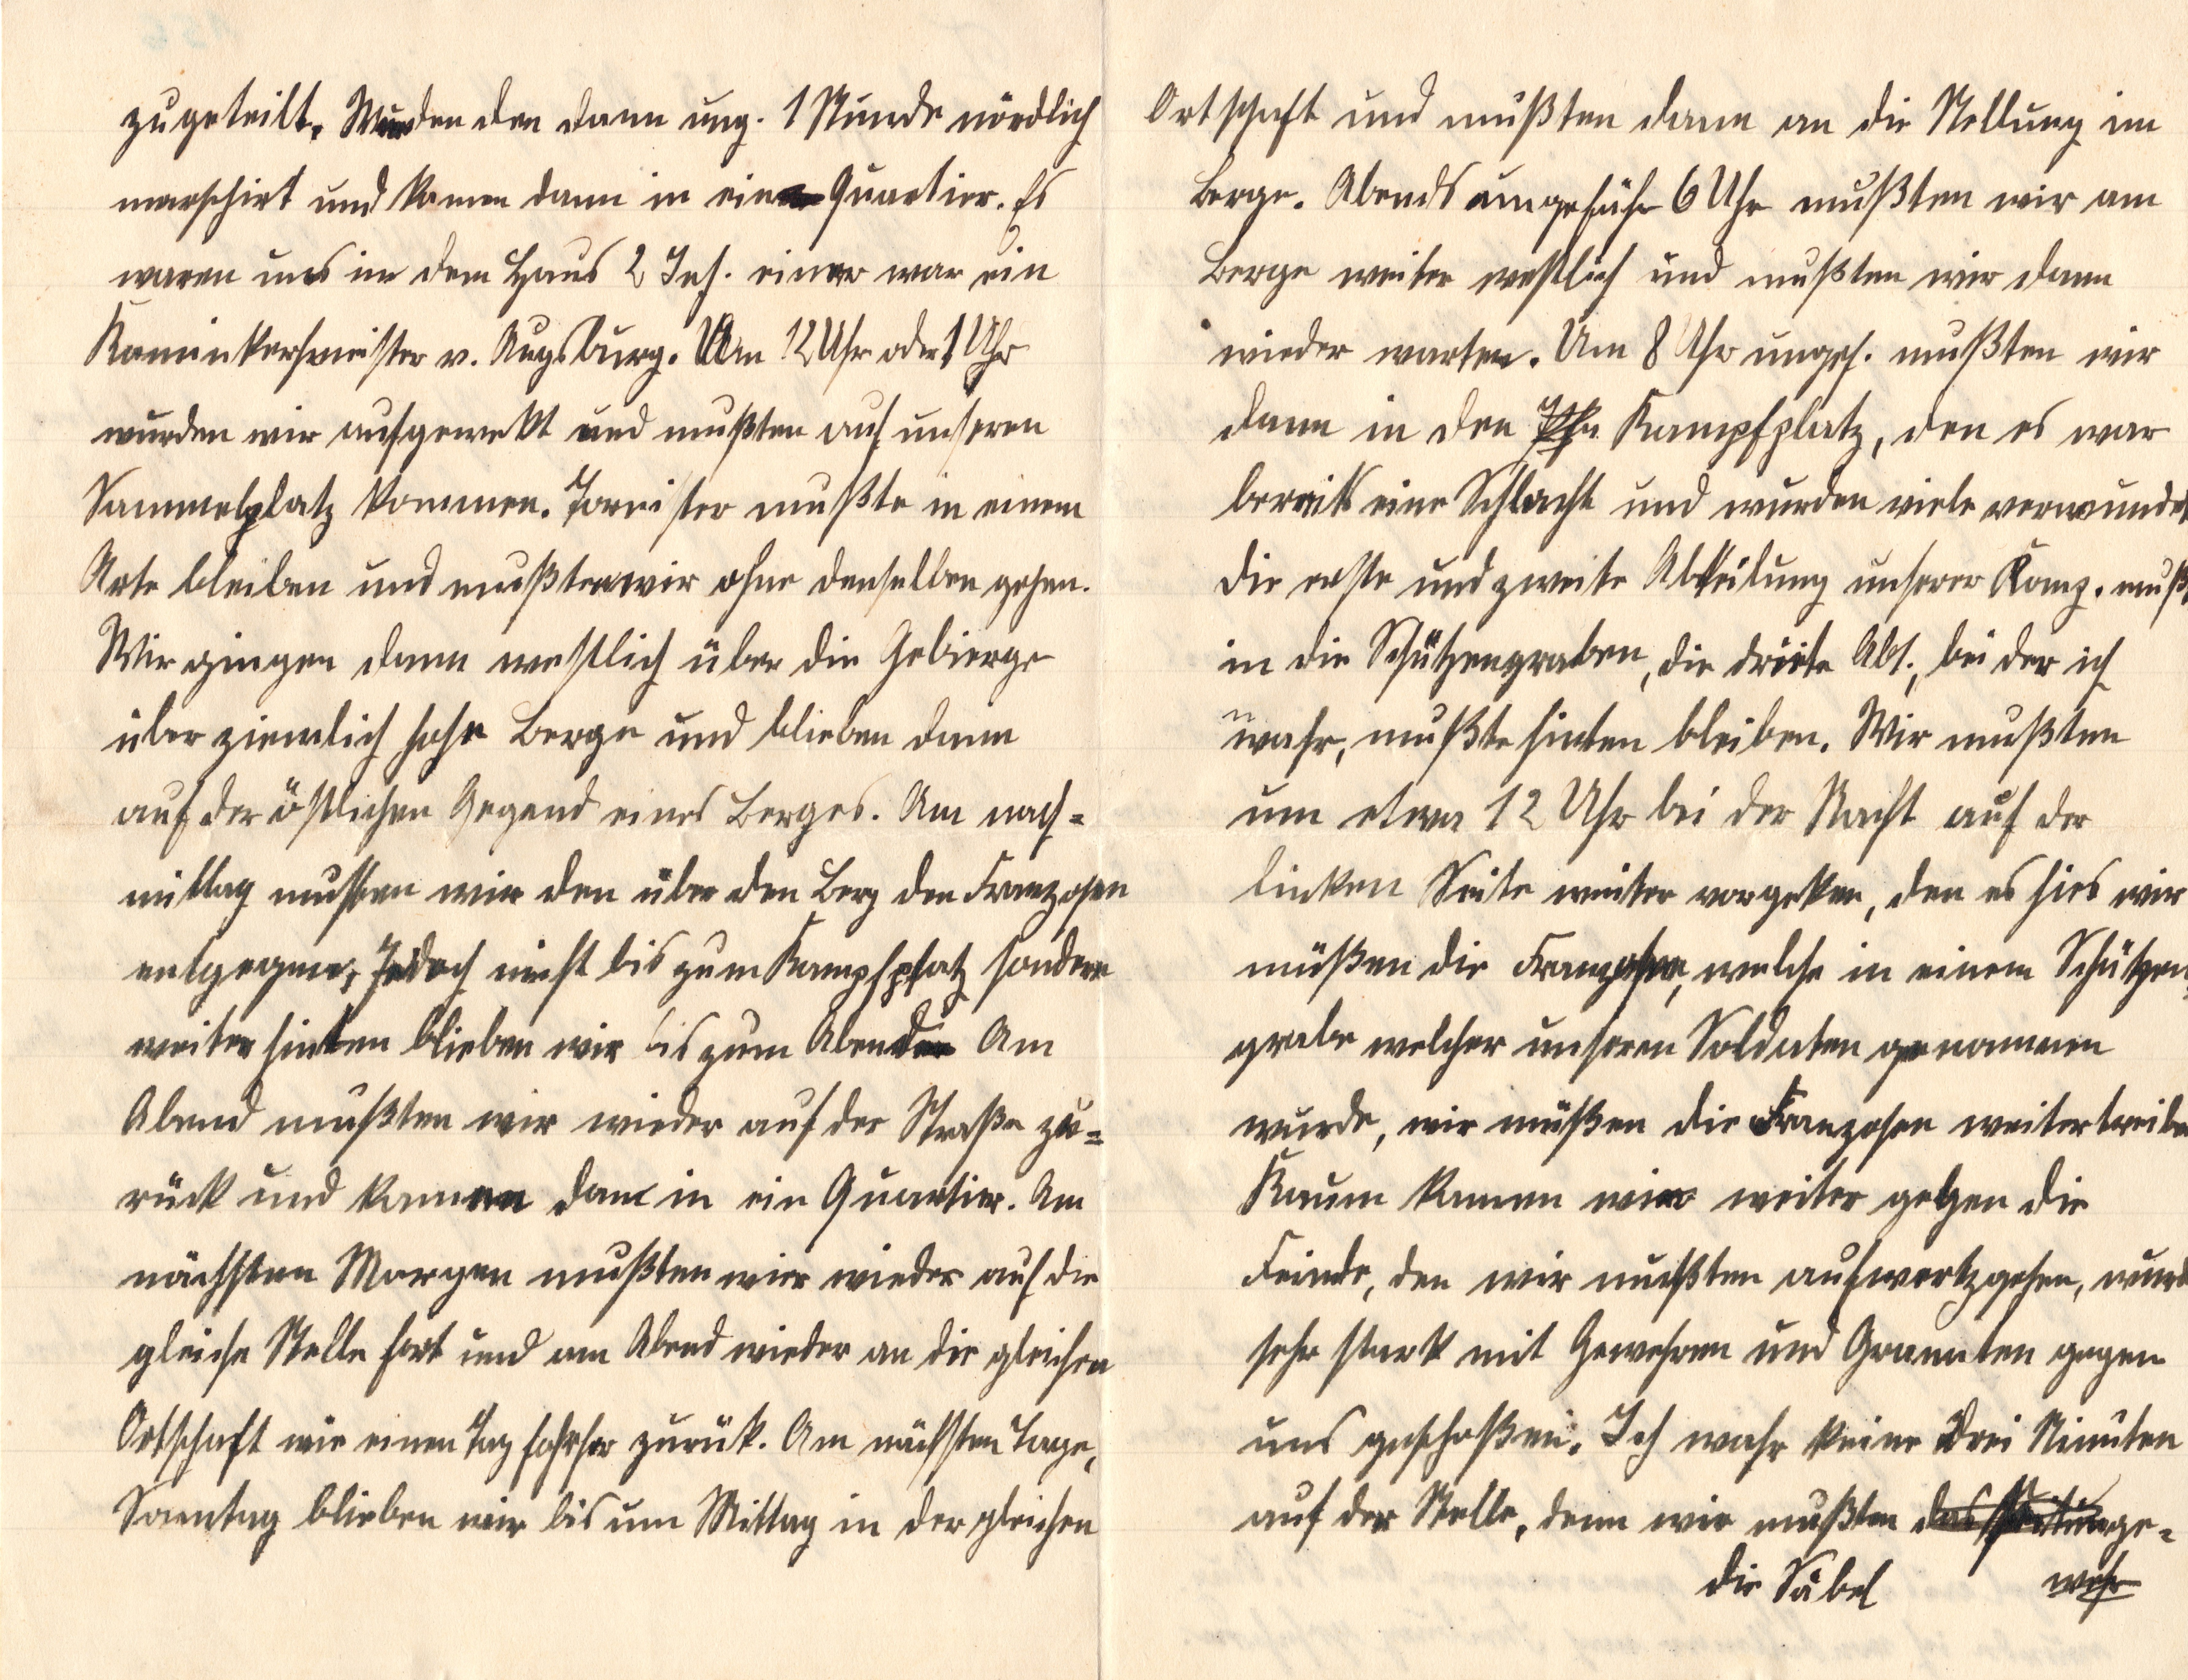 zugeteilt. Wurden den dann ung. 1 Stunde nördlich
marschirt und kamen dann in ein Quartier. Es
waren uns in dem Haus 2 Inf. einer war ein
Kaminkermeister v. Augsburg. Um 12 Uhr oder 1 Uhr
wurden wir aufgewekt und mußten auf unseren
Sammelplatz kommen. Tornister mußte in einem
Orte bleiben und mußten wir ohne denselben gehen.
Wir gingen dann westlich über die Gebierge
über ziemlich hohe Berge und blieben dann
auf der östlichen Gegend eines Berges. Am nach-
mittag mussten wir den über den Berg den Franzosen
entgegen, Jedoch nicht bis zum Kampfplatz sondern
weiter hinten blieben wir bis zum Abend Am
Abend mußten wir wieder auf der Straße zu-
rück und kamen dann in ein Quartier. Am
nächsten Morgen mußten wir wieder auf die
gleiche Stelle fort und am Abend wieder an die gleichen
Ortschaft wie einen Tag forher zurük. Am nächsten Tage,
Sonntag blieben wir bis um Mittag in der gleichen
Ortschaft und mußten dann an die Stellung im
Berge. Abends ungefähr 6 Uhr mußten wir am
Berge weiter westlich und mußten wir dann
wieder warten. Um 8 Uhr ungef. mußten wir
dann in den Kampfplatz, den es war
bereits eine Schlacht und wurden viele verwundet
Die erste und zweite Abteilung unserer Komp. mußt
in die Schützengraben, die dritte Abt., bei der ich
wahr, mußte hinten bleiben. Wir mußten
um etwa 12 Uhr bei der Nacht auf der
linken Seite weiter vorgehen, den es hies wir
müßen die Franzosen, welche in einem Schützen-
grabe welcher unseren Soldaten genommen
wurde, wir müßen die Franzosen weitertreiben
Kaum kamen wir weiter gegen die
Feinde, den wir mußten aufwertzgehen, wurd
sehr stark mit Gewehren und Granaten gegen
uns geschoßen. Ich wahr keine drei Minuten
auf der Stelle, denn wir mußten das Seitenge-
die Säbel wehr